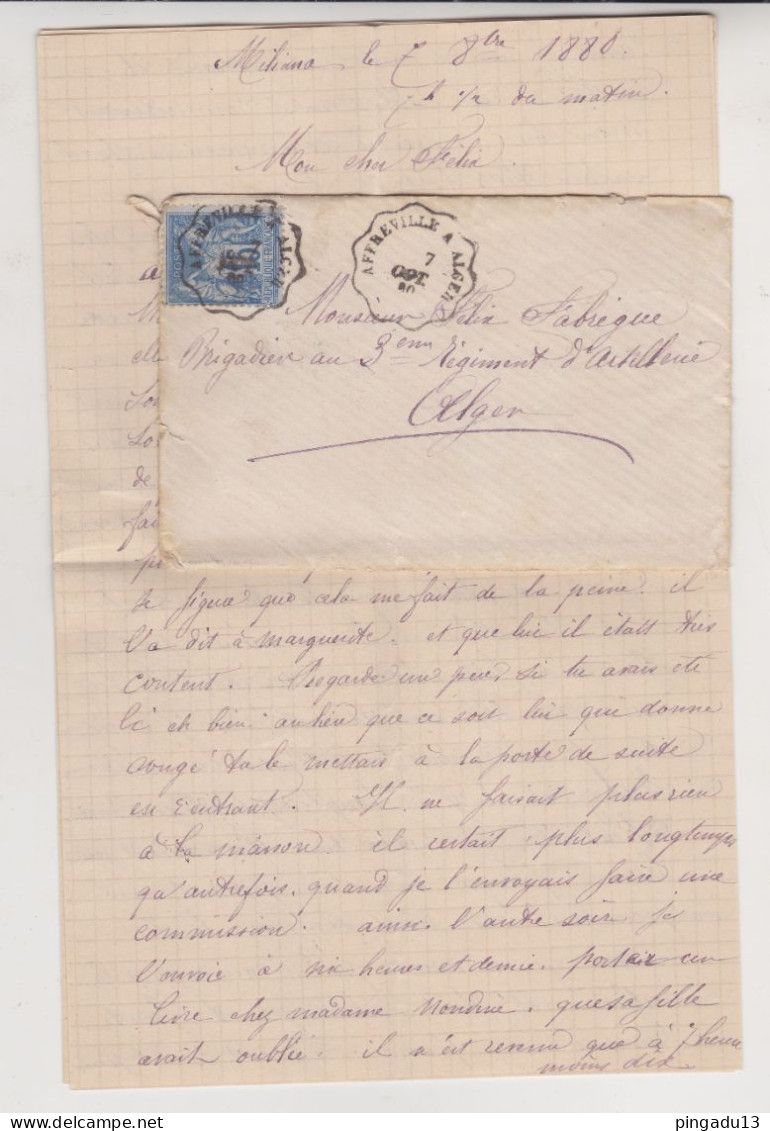 Miliana le 7 8bre 1880.
7 h 1/2 du matin.
Mon cher Félix.
AFFREVILLE A ALGER
AFFREVILLE A ALGER
7
OCT.
80
Monsieur Félix Fabrègue
Brigadier au 3eme Régiment d'Artillerie
Alger
de
se figure que cela me fait de la peine. il
l'a dit à marguerite. et que lui il était très
content. Regarde un peu si tu avais été
là eh bien! au lieu que ce soit lui qui donne
congé tu le mettais à la porte de suite
en rentrant. Il ne faisait plus rien
à la maison il restait plus longtemps
qu'autrefois. quand je l'envoyais faire une
commission. ainsi l'autre soir je
l'envoie à six heures et demie. porter un
livre chez madame que sa fille
avait oublié. il n'est revenu que à 7 heures
moins dix
pingadu13